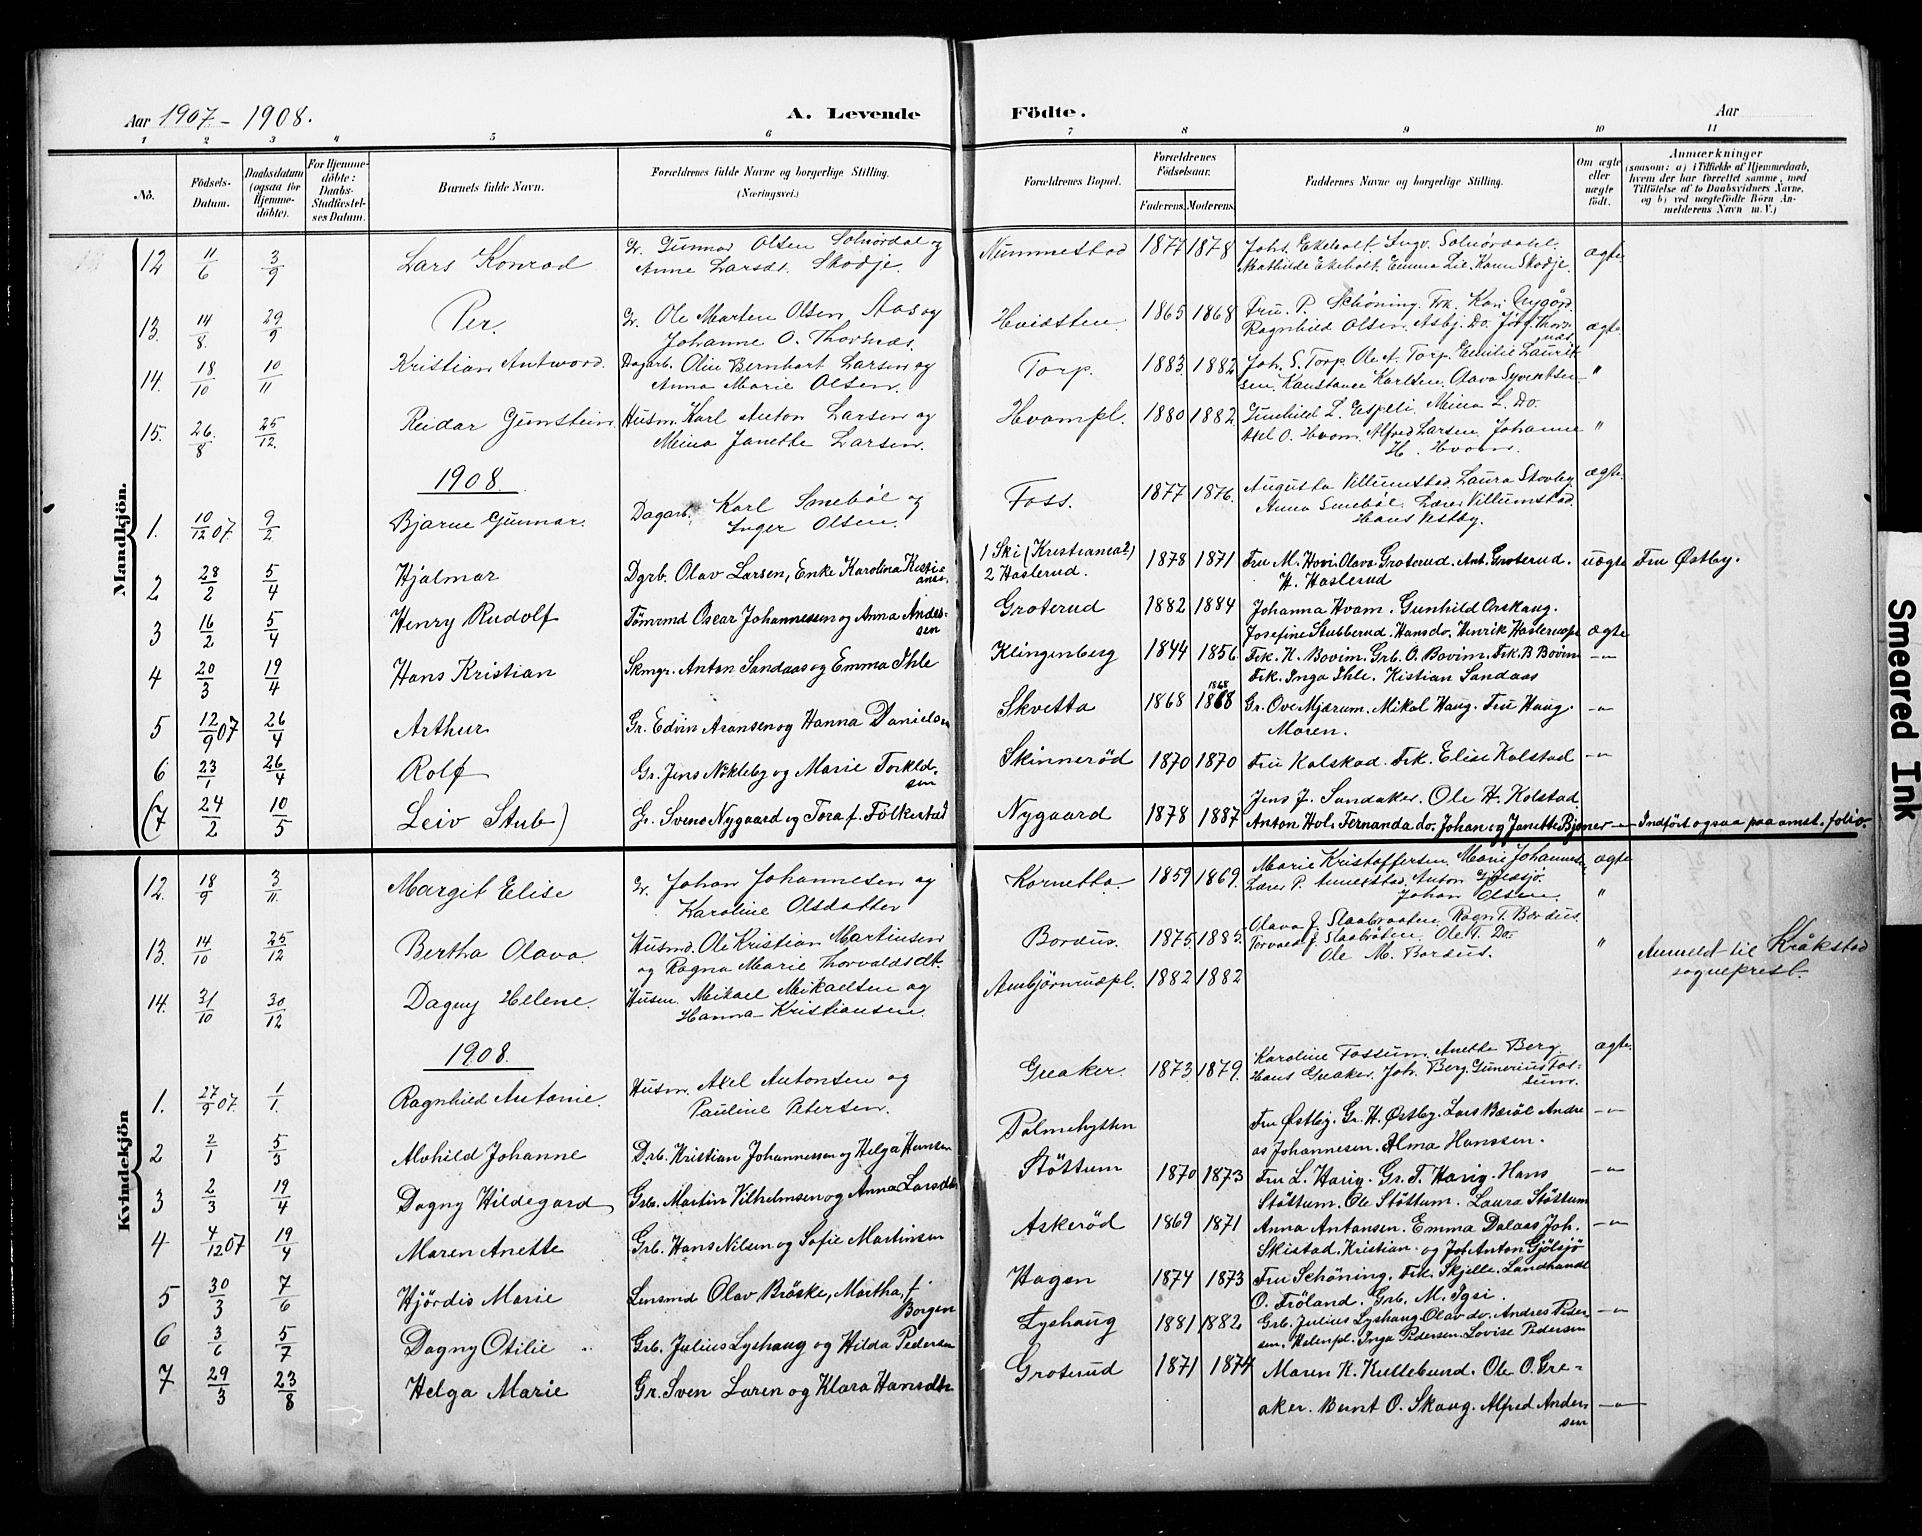 Aar 1907 - 1908.
A. Levende Födte.
Aar
1 2 3 4 5 6 7 8 9 10 11
No.
Födsels-Datum.
Daabsdatum (ogsaa for Hjemmedöbte).
For Hjemmedöbte: Daabs-Stadfæstelses Datum.
Barnets fulde Navn.
Forældrenes fulde Navne og borgerlige Stilling. (Næringsvei.)
Forældrenes Bopæl.
Forældrenes Födselsaar.
Faderens. Moderens.
Faddernes Navne og borgerlige Stilling.
Om ægte eller uægte födt.
Anmærkninger (saasom: a) i Tilfælde af Hjemmedaab, hvem der har forrettet samme, med Tilföielse af to Daabsvidners Navne, og b) ved uægtefödte Börn Anmelderens Navn m. V.)
Mandkjön.
12 11/6 3/9 Lars Konrad Gr. Gunnar Olsen Solnördal og Anne Larsdt. Skodje. Nummestad 1877 1878 Johs. Ekeholt. Ingv. Solnördahl. Mathilde Ekeholt. Emma Lie. Karen Skodje. ægte
13. 14/8 29/9 Per. Gr. Ole Marten Olsen Aas og Johanne O. Thornæs. Hvidsten 1865 1868 Fru P. Schöning. Frk. Kari Nygård. Ragnhild Olsen. Asbj. Do. Johs. Thornæs ægte
14. 18/10 10/11 Kristian Antword. Dagarb. Oluf Bernhart Larsen og Anna Marie Olsen. Torp. 1883 1882 Joh. S. Torp. Ole A. Torp. Emilie Lauritsen. Konstance Karlsen. Olava Syvertsen "
15. 26/8 25/12. Reidar Gunstein Husm. Karl Anton Larsen og Mina Janette Larsen. Hvampl. 1880 1882. Gunhild L. Espeli. Mina L. Do. Axel O. Hvam. Alfred Larsen. Johanne H. Hvam. "
1908.
1. 10/12 07 9/2 Bjarne Gunnar. Dagarb. Karl Smeböl og Inger Olsen. Foss. 1877 1876. Augusta Villumstad. Laura Stovby. Anna Smeböl. Lærer Villumstad. Hans Vestby. ægte.
2 28/2 5/4 Hjalmar Dgrb. Olav Larsen, Enke Karolina Kristiansn. 1 Ski (Kristiania?) 2 Haslerud. 1878 1871 Fru M. Hvi. Olava Groterud. Ant. Groterud. H. Haslerud uægte Fru Østby.
3 16/2 5/4 Henry Rudolf Tömmd Oscar Johannessen og Anna Andersen Groterud 1882 1884 Johanna Hvam. Gunhild Orskaug. Josefine Stubberud. Hans do. Henrik Haslerud ægte
4 20/3 19/4 Hans Kristian Skmgr. Anton Sandaas og Emma Ihle Klingenberg 1844 1856. Frk. H. Bovim. Grb. O. Bovim. Frk. B Bovim Frk. Inga Ihle. Kistian Sandaas —"—
5 12/9 07 26/4 Arthur Gr. Edvin Aronsen og Hanna Danielsn Skvetta 1868 1868 1868 Gr. Ove Mjærum. Mikal Haug. Fru Haug. Maren. —"—
6 23/1 26/4 Rolf Gr. Jens Nökleby og Marie Torkildsen Skinneröd 1870 1870 Fru Kolstad. Frk. Elise Kolstad Jens J. Sandaker. Ole H. Kolstad. —"—
(7 24/2 10/5 Leiv Stub) Gr. Svend Nygaard og Tora f. Folkestad Nygaard 1878 1887 Anton Hol. Fernanda do. Johan og Janette Bjöner —"— Indfört ogsaa paa omst. folio.
Kvindekjön
12. 18/9 3/11. Margit Elise Gr. Johan Johannesen og Karoline Olsdatter Kornetta. 1859 1869. Marie Kristoffersen. Marie Johannesn. Lærer P. Annekstad. Anton Gjölsjö. Johan Olsen. ægte "
13. 14/10 25/12 Bertha Olava. Husmd. Ole Kristian Martinsen og Ragna Marie Thorvaldsdt. Bordus. 1875 1885. Olava J. Slaabraaten. Ragn. T. Bordus. Torvald J. Slaabråten. Ole T. Do. Ole M. Bordus. " Anmeldt til Kråkstad sogneprest.
14. 31/10 30/12 Dagny Helene. Husm. Mikael Mikaelsen og Hanna Kristiansen. Ambjörnrudpl. 1882 1882
1908.
1. 27/9 07. 1/1. Ragnhild Antonie. Husm. Axel Antonsen og Pauline Petersen. Greaker. 1873 1879. Karoline Fossum. Anette Berg. Hans Greaker. Joh. Berg. Gunerius Fossum. ægte.
2 2/1 5/3 Alvhild Johanne Drb. Kristian Johannessen og Helga Hansen Palmehytten Fru Østby. Gr. H. Østby. Lars Bæröe Andreas Johannesen. Alma Hanssen. —"—
3 2/3 19/4 Dagny Hildegard Grb. Martin Vilhelmsen og Anna Larsdtr Stöttum 1870 1873 Fru L. Harig. Gr. T. Harig. Hans Stöttum. Ole Stöttum. Laura Stöttum —"—
4 4/12 07 19/4 Maren Anette Grb. Hans Nilsen og Sofie Martinsen Askeröd 1869 1871 Anna Antonsen. Emma Dalaas Joh. Skistad. Kristian og Joh. Anton Gjölsjö —"—
5 30/3 7/6 Hjördis Marie Lensmd Olav Bröske, Martha, f. Borgen Hagen 1874 1873 Fru Schöning. Frk. Skjelle. Landhandl. O. Fröland. Grb. M. Igsi.
6 3/6 5/7 Dagny Otilie Grb. Julius Lyshaug og Hilda Pedersen Lyshaug 1881 1882 Grb. Julius Lyshaug Olav do. Andres Pedersen. Holenpl. Inga Pedersen. Lovise Pedersen —"—
7 29/3 23/8 Helga Marie Gr. Sven Laren og Klara Hansdtr Groterud 1871 1874 Maren K. Kullebund. Ole O. Greaker. Bernt O. Skaug. Alfred Andersen —"—
Smeared Ink